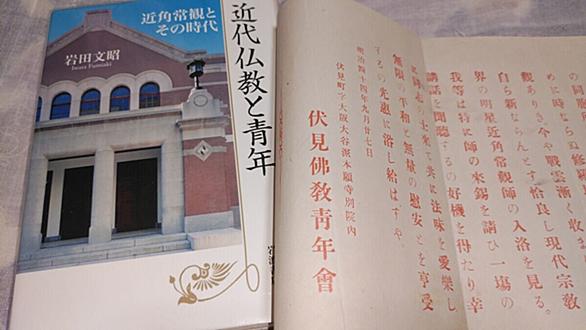 近角常観と
その時代
岩田文昭
Iwata Fumiaki
近代仏教と青年
の同
めに時ならぬ修羅
觀ありき今や戰雲漸く收
自ら新ならんとす恰も良し現代宗敎
界の明星近角常觀師の入洛を見る。
我等は特に師の來錫を請ひ一塲の
講話を聞聽するの好機を得たり幸
の士來て共に法味を愛樂し
無限の平和と無量の慰安とを享受
するの光に浴し給はずや。
明治四十四年九月廿七日
伏見町字大阪大谷派本願寺別院内
伏見佛敎靑年會